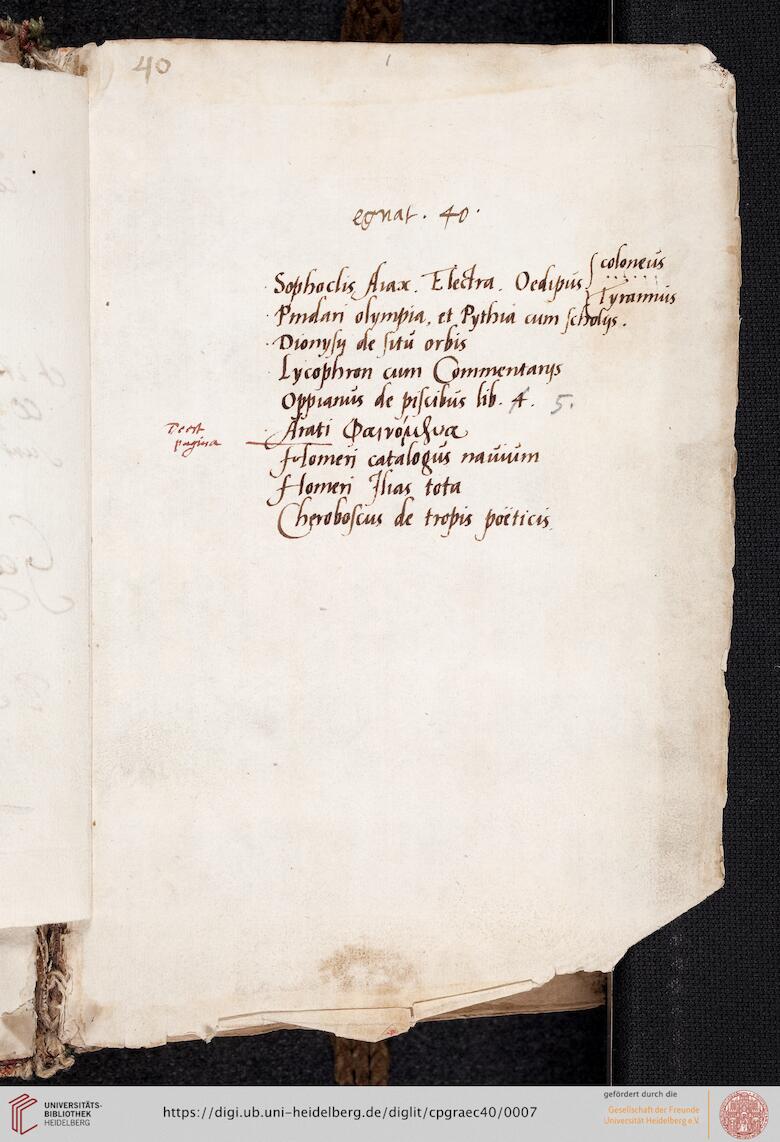 40
egnat. 40.
Sophoclis Aiax. Electra. Oedipus { coloneus
Tyrannus
Pindari olympia, et Pythia cum scholijs.
Dionysij de situ orbis
Lycophron cum Commentarijs
Oppianus de piscibus lib. 4. 5.
Deest pagina
Arati Φαινόμενα
Homeri catalogus nauium
Homeri Ilias tota
Cheroboscus de tropis poëticis
UNIVERSITÄTS-
BIBLIOTHEK
HEIDELBERG
https://digi.ub.uni-heidelberg.de/diglit/cpgraec40/0007
gefördert durch die
Gesellschaft der Freunde
Universität Heidelberg e.V.